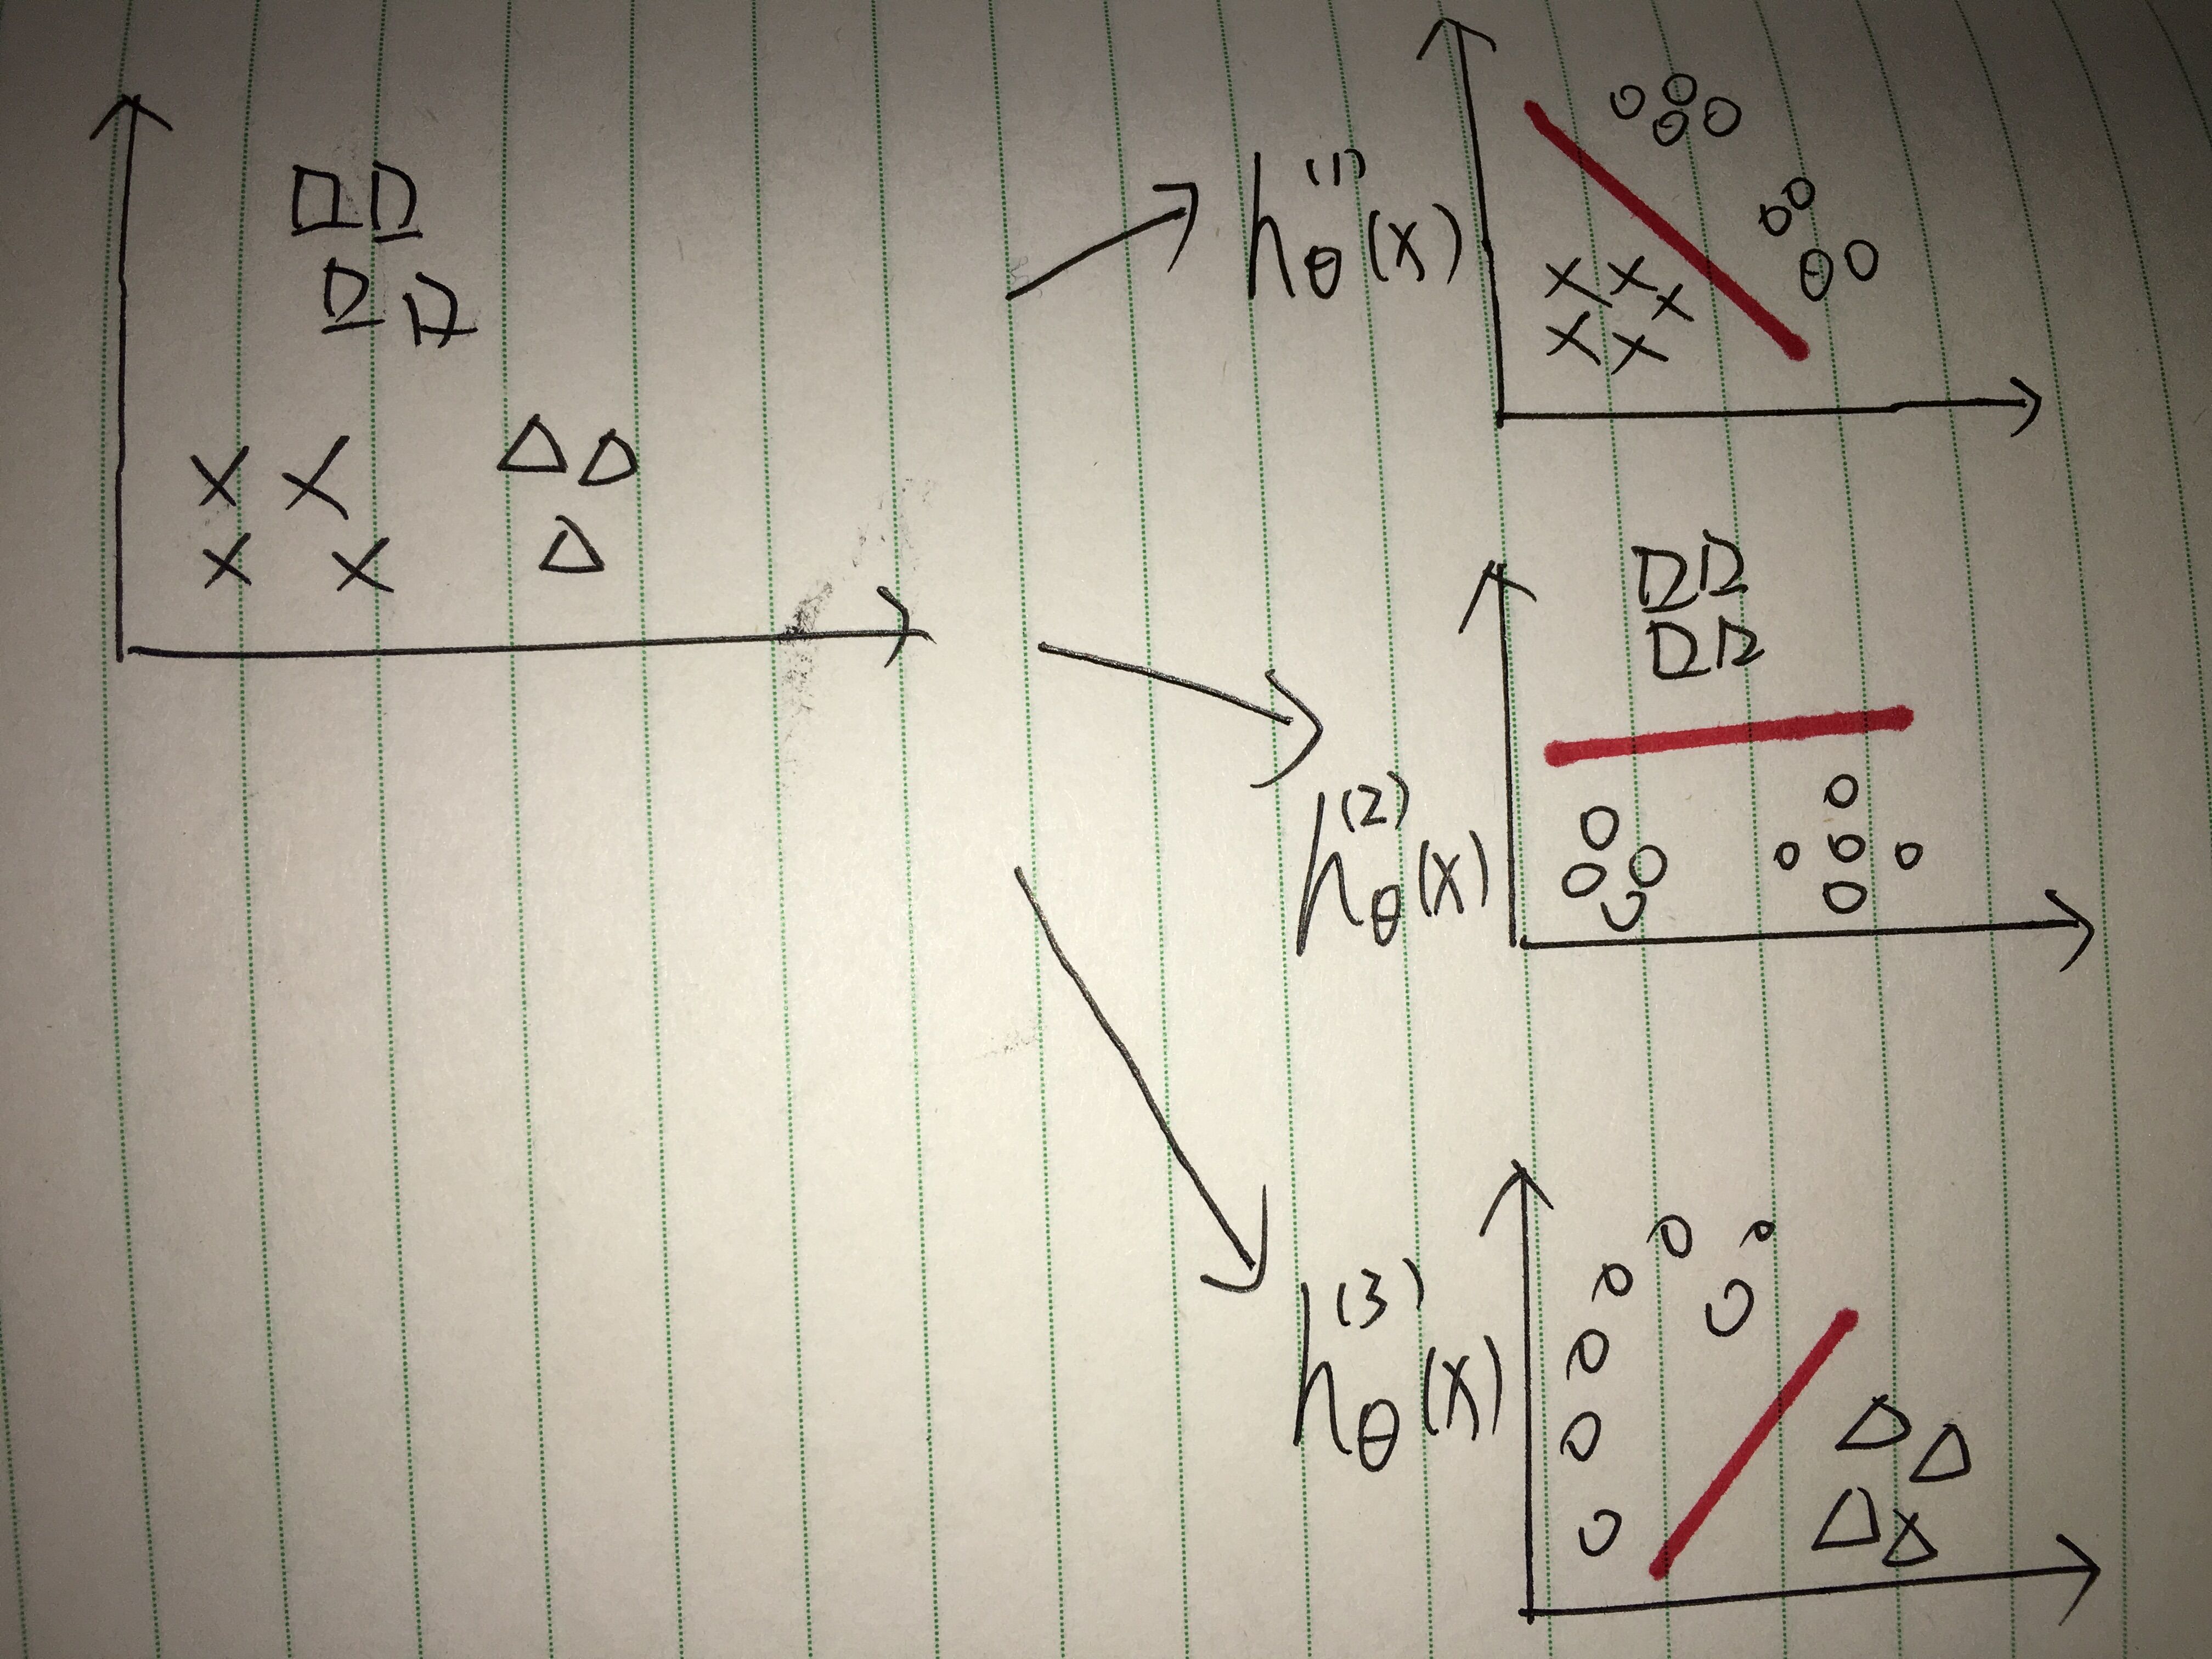 h_θ^(1)(x)
h_θ^(2)(x)
h_θ^(3)(x)